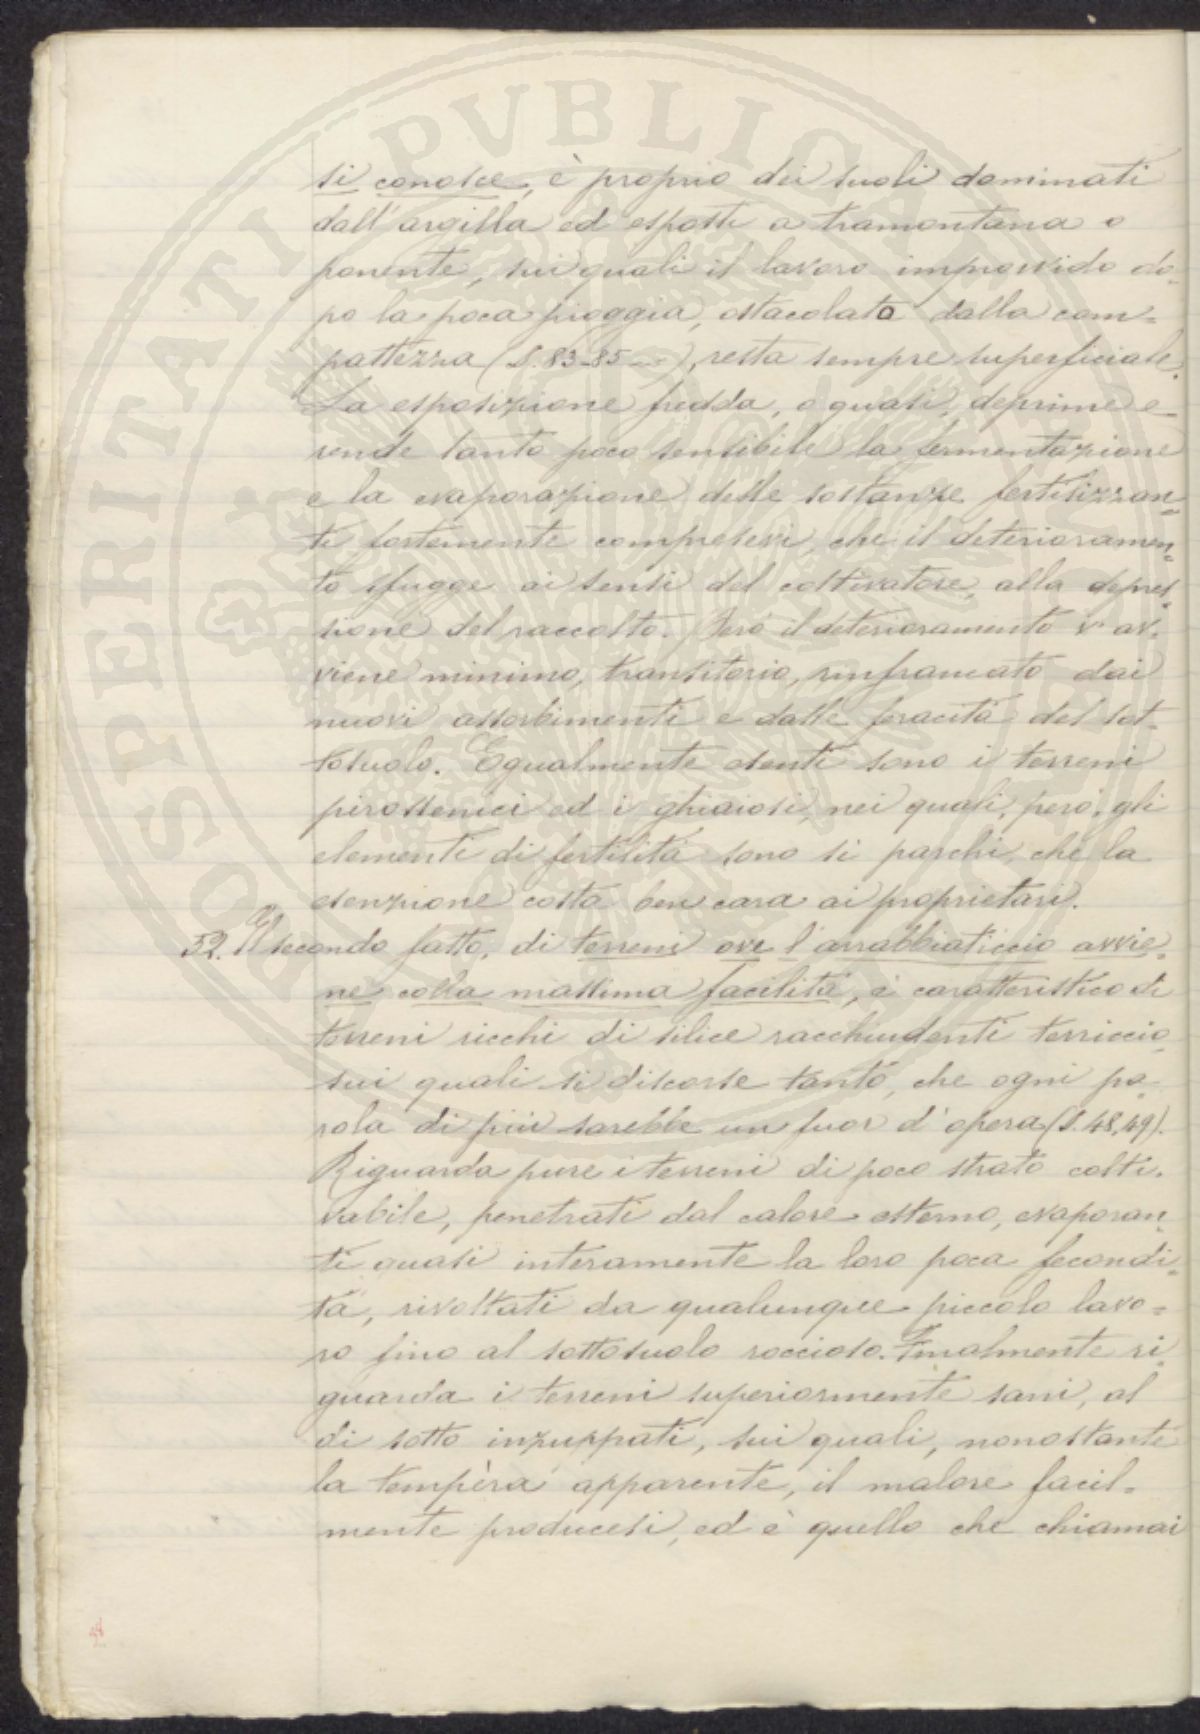 si conosce, è proprio dei suoli dominati
dall'argilla ed esposti a tramontana o
ponente, sui quali il lavoro improvvido do-
po la poca pioggia, ostacolato dalla com-
pattezza (S. 83-85 -), resta sempre superficiale.
La esposizione fredda, o quasi, deprime e
rende tanto poco sensibile la fermentazione
e la evaporazione delle sostanze fertilizzan-
ti fortemente compresevi, che il deterioramen-
to sfugge ai sensi del coltivatore, alla depres-
sione del raccolto. Però il deterioramento v'av-
viene minimo, transitorio, rinfrancato dai
nuovi assorbimenti e dalle feracità del sot-
tosuolo. Egualmente esenti sono i terreni
pirostenici ed i ghiaiosi, nei quali, però, gli
elementi di fertilità sono sì parchi, che la
esenzione costa ben cara ai proprietari.
52. Il secondo fatto, di terreni ove l'arrabbiaticcio avvie-
ne colla massima facilità, è caratteristico di
terreni ricchi di silice racchiudenti terriccio
sui quali si discorse tanto, che ogni pa-
rola di più sarebbe un fuor d'opera (S. 48, 49).
Riguarda pure i terreni di poco strato colti-
vabile, penetrati dal calore esterno, evaporan-
ti quasi interamente la loro poca fecondi-
tà, rivoltati da qualunque piccolo lavo-
ro fino al sottosuolo roccioso. Finalmente ri-
guarda i terreni superiormente sani, al
di sotto inzuppati, sui quali, nonostante
la tempèra apparente, il malore facil-
mente producesi, ed è quello che chiamai
PROSPERITATI PVBLICAE